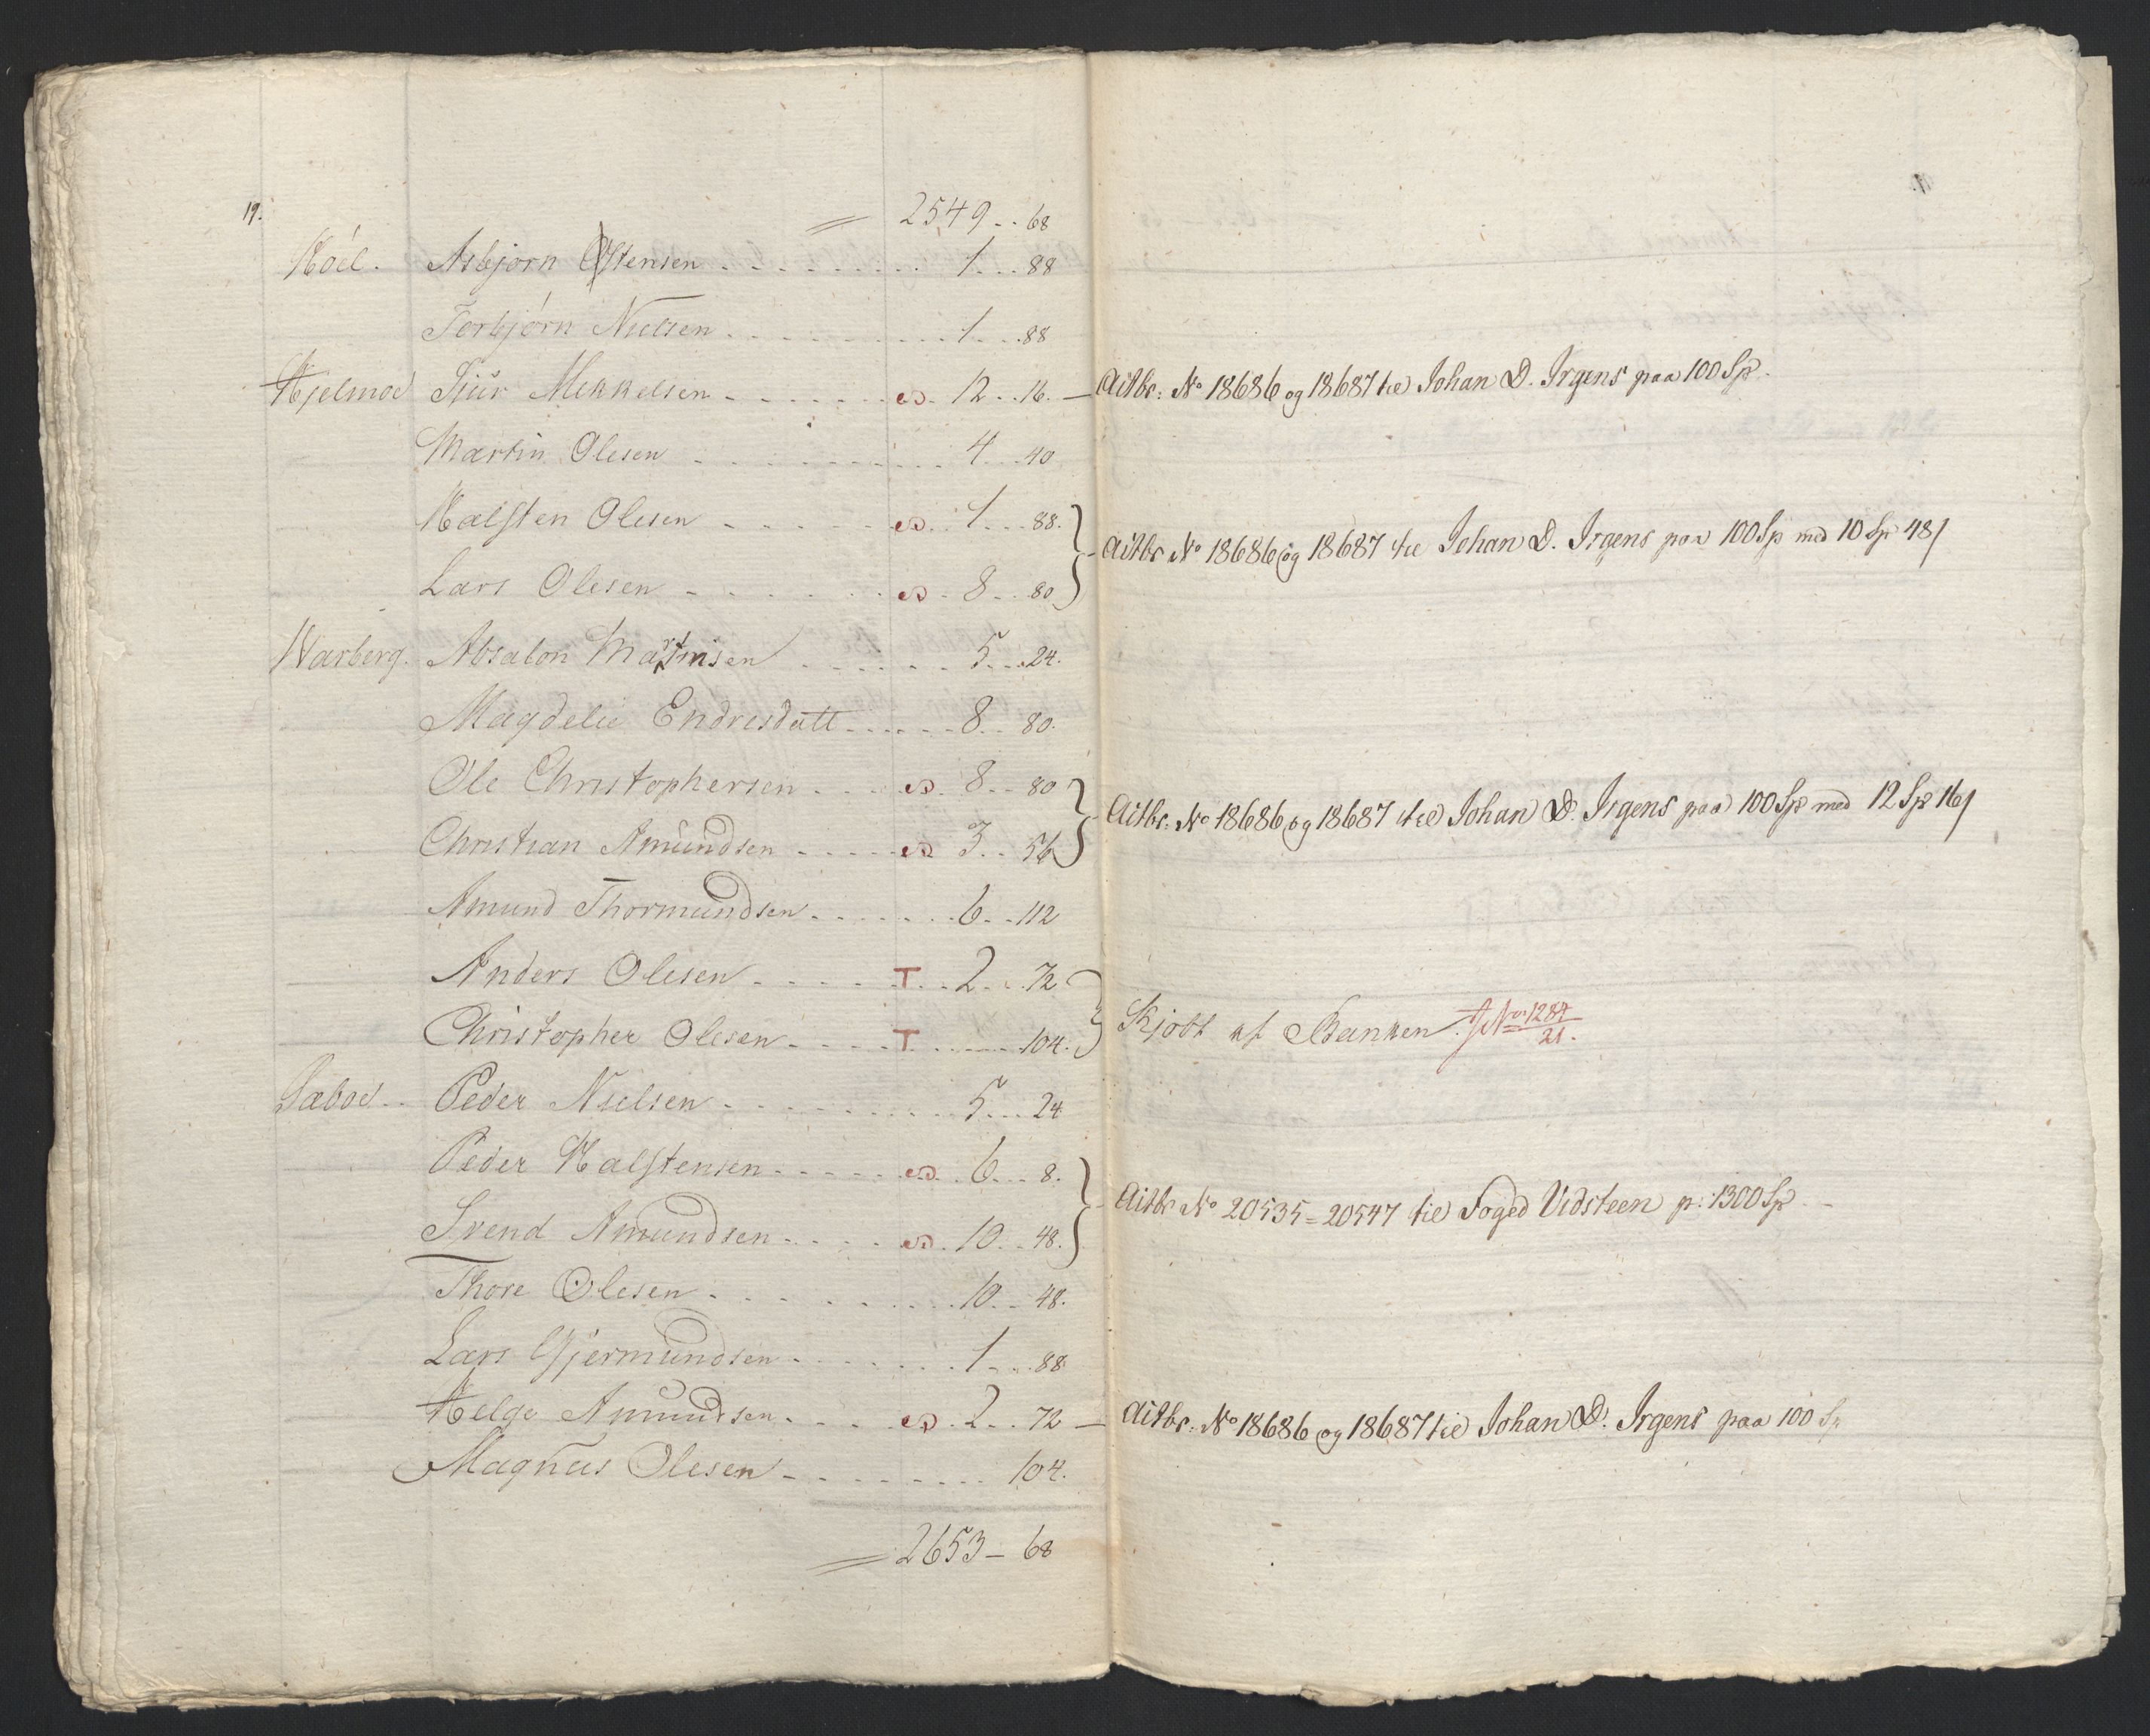 19.
2549 .. 68
Höel. Asbjørn Østensen . . . . 1 . . . 88
Torbjørn Nielsen . . . . 1 . . . 88
Hjelmoe Siur Mekkelsen . . . . 12 . . 16. — Actbr: No 18686 og 18687 til Johan D. Irgens paa 100 Sp.
Martin Olesen . . . . 4 . . . 40
Halsten Olesen . . . . 1 . . . 88.
Actbr No 18686 og 18687 til Johan D. Irgens paa 100 Sp med 10 Sp 48
Lars Olesen . . . . 8 . . 80
Warberg. Absalon Martinsen . . . . 5 . . . 24.
Magdelie Endresdatt . . . . 8 . . 80.
Ole Christophersen . . . . 8 . . 80
Actbr: No 18686 og 18687 til Johan D. Irgens paa 100 Sp med 12 Sp 16
Christian Amundsen . . . . 3 . . 56
Amund Thormundsen . . . . 6 . . 112
Anders Olesen . . . . T . . 2 . . . 72
Kjøbt af Banken. No 1284/21.
Christopher Olesen . . . . T . . . . 104.
Sæboe . . Peder Nielsen . . . . 5 . . . 24
Peder Halstensen . . . . 6 . . . 8.
Actbr No 20535 = 20547 til Foged Vidsteen p: 1300 Sp
Svend Amundsen . . . . 10 . . 48.
Thore Olesen . . . . 10 . . 48.
Lars Gjermundsen . . . . 1 . . . 88
Helge Amundsen . . . . 2 . . 72 — Actbr: No 18686 og 18687 til Johan D. Irgens paa 100 Sp
Magnus Olesen . . . . 104.
2653 — 68